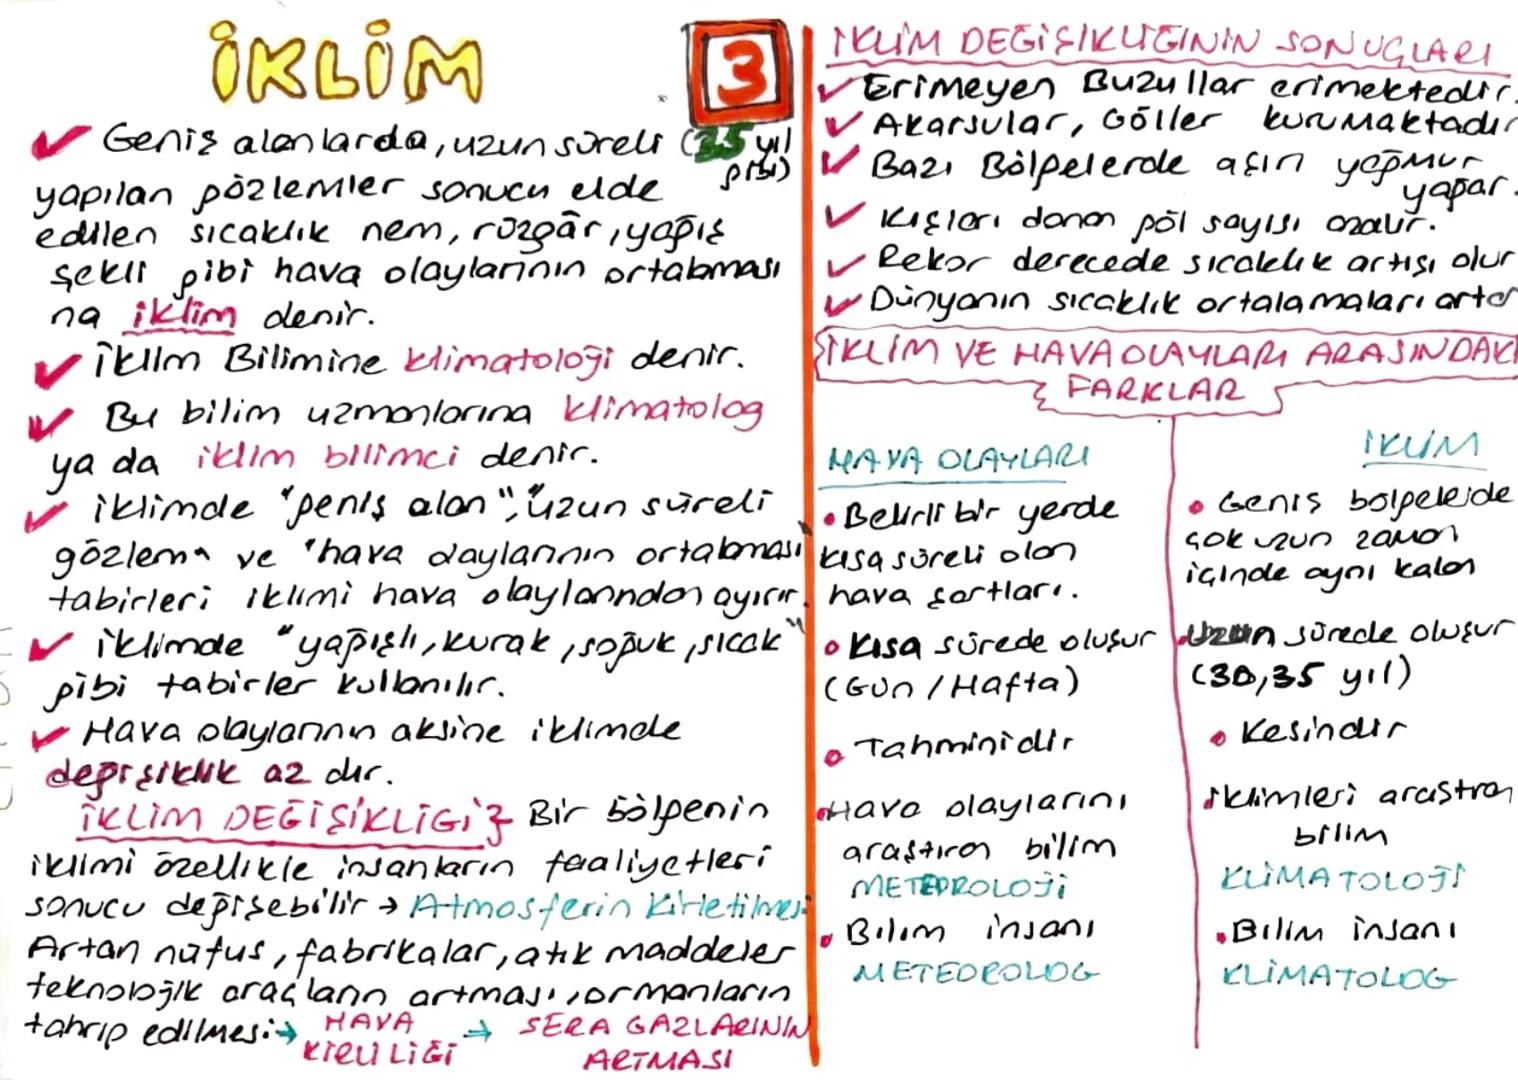 İKLİM
3
✓ Geniş alanlarda, uzun süreli (35 yıl
gibi)
yapılan gözlemler sonucu elde
edilen sıcaklık nem, rüzgâr, yağış
şekli gibi hava olaylarının ortalaması
na iklim denir.
✓ İklim Bilimine klimatoloji denir.
✓ Bu bilim uzmanlarına klimatolog
ya da iklim bilimci denir.
✓ iklimde "geniş alan", "uzun süreli
gözlem" ve "hava olaylarının ortalaması"
tabirleri iklimi hava olaylarından ayırır.
✓ iklimde "yağışlı, kurak, soğuk, sıcak"
gibi tabirler kullanılır.
✓ Hava olaylarının aksine iklimde
değişiklik az dır.
İKLİM DEĞİŞİKLİĞİ Bir bölgenin
iklimi özellikle insanların faaliyetleri
sonucu değişebilir → Atmosferin kirletilmesi
Artan nüfus, fabrikalar, atık maddeler
teknolojik araçların artması, ormanların
tahrip edilmesi → HAVA KİRLİLİĞİ → SERA GAZLARININ ARTMASI
İKLİM DEĞİŞİKLİĞİNİN SONUÇLARI
✓ Erimeyen Buzullar erimektedir.
✓ Akarsular, Göller kurumaktadır
✓ Bazı Bölgelerde aşırı yağmur
yağar.
✓ Kışları donan göl sayısı azalır.
✓ Rekor derecede sıcaklık artışı olur
✓ Dünyanın sıcaklık ortalamaları artar
İKLİM VE HAVA OLAYLARI ARASINDAKİ
FARKLAR
HAVA OLAYLARI
• Belirli bir yerde
kısa süreli olan
hava şartları.
• Kısa sürede oluşur
(Gün / Hafta)
• Tahminidir
• Hava olaylarını
araştıran bilim
METEOROLOJİ
• Bilim insanı
METEOROLOG
İKLİM
• Geniş bölgelerde
çok uzun zaman
içinde aynı kalan
• Uzun sürede oluşur
(30,35 yıl)
• Kesindir
• iklimleri araştıran
bilim
KLİMATOLOJİ
• Bilim insanı
KLİMATOLOG